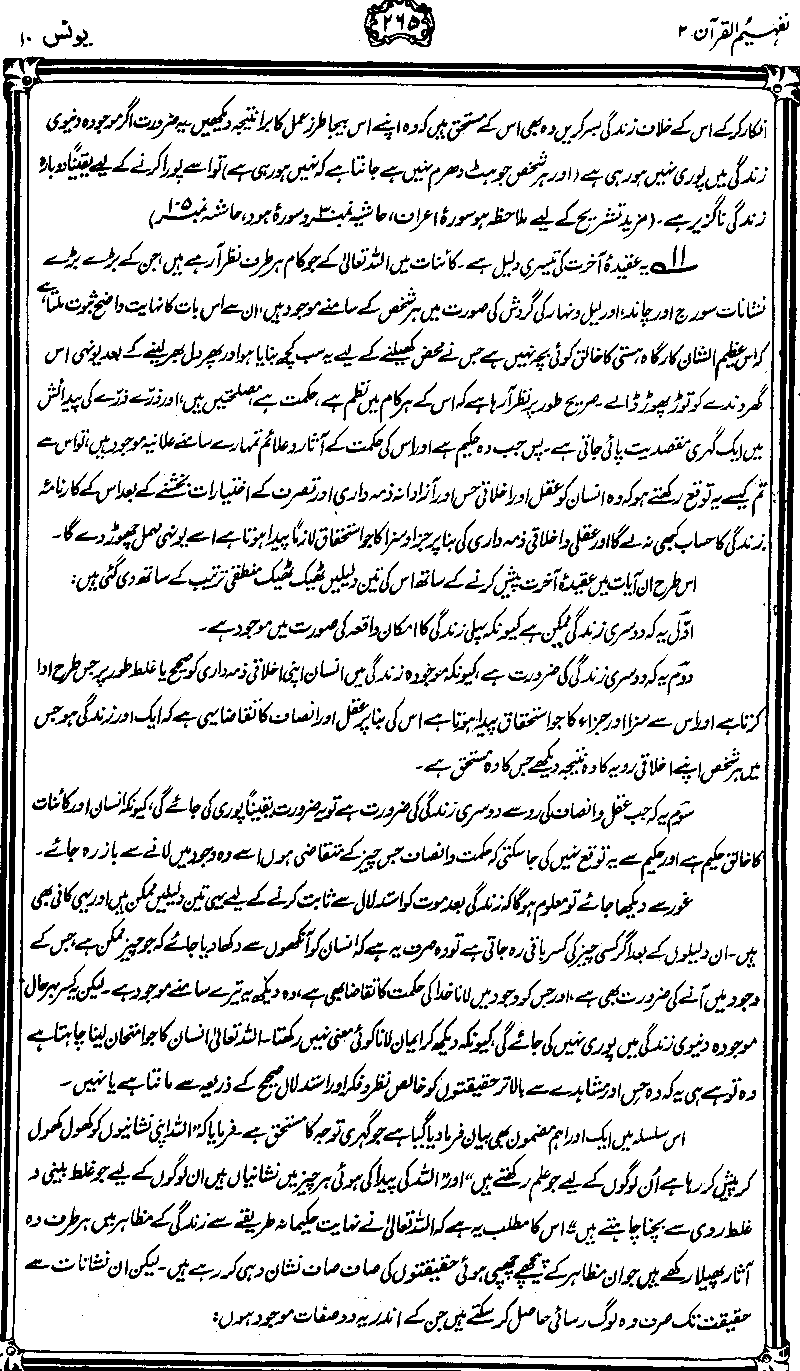 تفہیم القرآن ۲
۲۶۵
یونس ۱۰
انکار کر کے اس کے خلاف زندگی بسر کریں وہ بھی اس کے مستحق ہیں کہ وہ اپنے اس بیجا طرز عمل کا برا نتیجہ دیکھیں۔ یہ ضرورت اگر موجودہ دنیوی
زندگی میں پوری نہیں ہو رہی ہے (اور ہر شخص جو ہٹ دھرم نہیں ہے جانتا ہے کہ نہیں ہو رہی ہے) تو اسے پورا کرنے کے لیے یقیناً دوبارہ
زندگی ناگزیر ہے۔ (مزید تشریح کے لیے ملاحظہ ہو سورۂ اعراف، حاشیہ نمبر ۳۰ و سورۂ ہود، حاشیہ نمبر ۱۰۵)
۱۱ یہ عقیدۂ آخرت کی تیسری دلیل ہے۔ کائنات میں اللہ تعالیٰ کے جو کام ہر طرف نظر آ رہے ہیں، جن کے بڑے بڑے
نشانات سورج اور چاند، اور لیل و نہار کی گردش کی صورت میں ہر شخص کے سامنے موجود ہیں، ان سے اس بات کا نہایت واضح ثبوت ملتا ہے
کہ اس عظیم الشان کارگاہ ہستی کا خالق کوئی بچہ نہیں ہے جس نے محض کھیلنے کے لیے یہ سب کچھ بنایا ہو اور پھر دل بھر لینے کے بعد یونہی اس
گھروندے کو توڑ پھوڑ ڈالے۔ صریح طور پر نظر آ رہا ہے کہ اس کے ہر کام میں نظم ہے، حکمت ہے، مصلحتیں ہیں، اور ذرّے ذرّے کی پیدائش
میں ایک گہری مقصدیت پائی جاتی ہے۔ پس جب وہ حکیم ہے اور اس کی حکمت کے آثار و علائم تمہارے سامنے علانیہ موجود ہیں، تو اس سے
تم کیسے یہ توقع رکھتے ہو کہ وہ انسان کو عقل اور اخلاقی حس اور آزادانہ ذمہ داری اور تصرف کے اختیارات بخشنے کے بعد اس کے کارنامۂ
زندگی کا حساب کبھی نہ لے گا اور عقلی و اخلاقی ذمہ داری کی بنا پر جزا و سزا کا جو استحقاق لازماً پیدا ہوتا ہے اسے یونہی مہمل چھوڑ دے گا۔
اس طرح ان آیات میں عقیدۂ آخرت پیش کرنے کے ساتھ اس کی تین دلیلیں ٹھیک ٹھیک منطقی ترتیب کے ساتھ دی گئی ہیں:
اوّل یہ کہ دوسری زندگی ممکن ہے کیونکہ پہلی زندگی کا امکان واقعہ کی صورت میں موجود ہے۔
دوم یہ کہ دوسری زندگی کی ضرورت ہے، کیونکہ موجودہ زندگی میں انسان اپنی اخلاقی ذمہ داری کو صحیح یا غلط طور پر جس طرح ادا
کرتا ہے اور اس سے سزا اور جزاء کا جو استحقاق پیدا ہوتا ہے اس کی بنا پر عقل اور انصاف کا تقاضا یہی ہے کہ ایک اور زندگی ہو جس
میں ہر شخص اپنے اخلاقی رویہ کا وہ نتیجہ دیکھے جس کا وہ مستحق ہے۔
سوم یہ کہ جب عقل و انصاف کی رو سے دوسری زندگی کی ضرورت ہے تو یہ ضرورت یقیناً پوری کی جائے گی، کیونکہ انسان اور کائنات
کا خالق حکیم ہے اور حکیم سے یہ توقع نہیں کی جا سکتی کہ حکمت و انصاف جس چیز کے متقاضی ہوں اسے وہ وجود میں لانے سے باز رہ جائے۔
غور سے دیکھا جائے تو معلوم ہوگا کہ زندگی بعد موت کو استدلال سے ثابت کرنے کے لیے یہی تین دلیلیں ممکن ہیں اور یہی کافی بھی
ہیں۔ ان دلیلوں کے بعد اگر کسی چیز کی کسر باقی رہ جاتی ہے تو وہ صرف یہ ہے کہ انسان کو آنکھوں سے دکھا دیا جائے کہ جو چیز ممکن ہے، جس کے
وجود میں آنے کی ضرورت بھی ہے، اور جس کو وجود میں لانا خدا کی حکمت کا تقاضا بھی ہے، وہ دیکھ یہ تیرے سامنے موجود ہے۔ لیکن یہ کسر بہرحال
موجودہ دنیوی زندگی میں پوری نہیں کی جائے گی، کیونکہ دیکھ کر ایمان لانا کوئی معنی نہیں رکھتا۔ اللہ تعالیٰ انسان کا جو امتحان لینا چاہتا ہے
وہ تو ہے ہی یہ کہ وہ حِس اور مشاہدے سے بالاتر حقیقتوں کو خالص نظر و فکر اور استدلال صحیح کے ذریعہ سے مانتا ہے یا نہیں۔
اس سلسلہ میں ایک اور اہم مضمون بھی بیان فرما دیا گیا ہے جو گہری توجہ کا مستحق ہے۔ فرمایا کہ ”اللہ اپنی نشانیوں کو کھول کھول
کر پیش کر رہا ہے اُن لوگوں کے لیے جو علم رکھتے ہیں“ اور ”اللہ کی پیدا کی ہوئی ہر چیز میں نشانیاں ہیں ان لوگوں کے لیے جو غلط بینی و
غلط روی سے بچنا چاہتے ہیں“ اس کا مطلب یہ ہے کہ اللہ تعالیٰ نے نہایت حکیمانہ طریقے سے زندگی کے مظاہر میں ہر طرف وہ
آثار پھیلا رکھے ہیں جو ان مظاہر کے پیچھے چھپی ہوئی حقیقتوں کی صاف صاف نشان دہی کر رہے ہیں۔ لیکن ان نشانات سے
حقیقت تک صرف وہ لوگ رسائی حاصل کر سکتے ہیں جن کے اندر یہ دو صفات موجود ہوں: